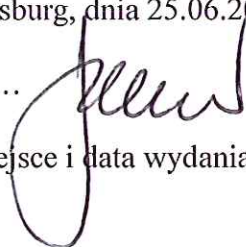 sburg, dnia 25.06.20
..
ejsce i data wydania